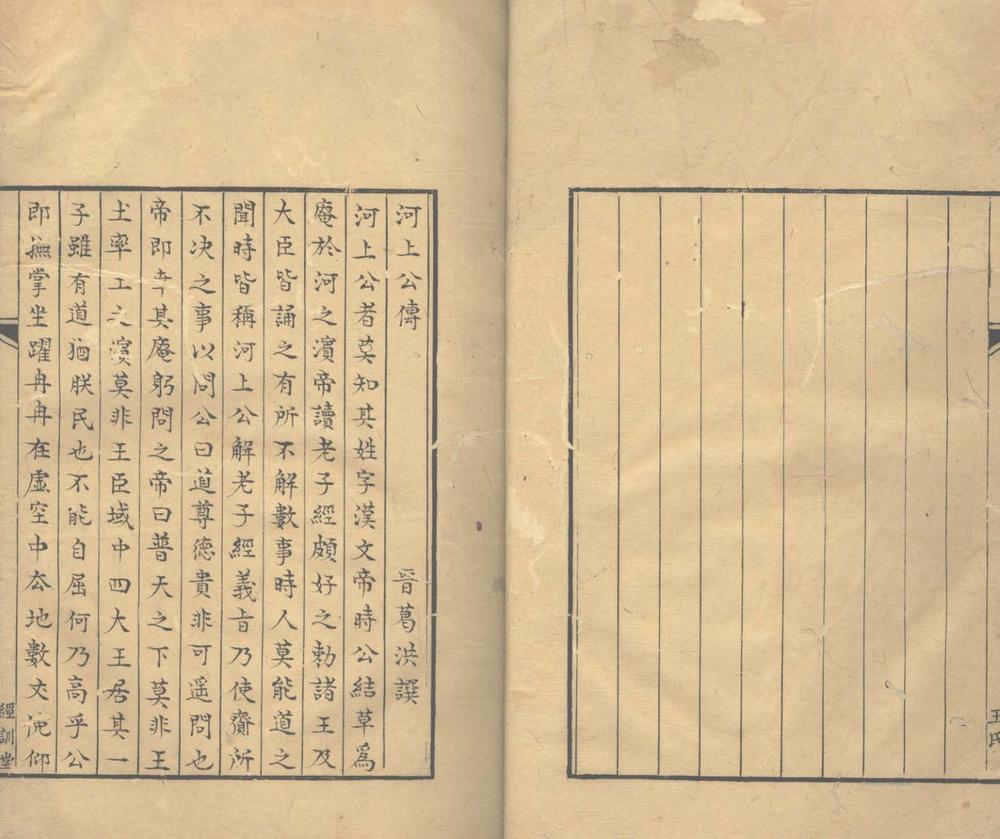 河上公傳 晉葛洪譔
河上公者莫知其姓字漢文帝時公結草爲
庵於河之濱帝讀老子經頗好之勅諸王及
大臣皆誦之有所不解數事時人莫能道之
聞時皆稱河上公解老子經義旨乃使齎所
不决之事以問公曰道尊德貴非可遥問也
帝即幸其庵躬問之帝曰普天之下莫非王
土率土之濱莫非王臣域中四大王居其一
子雖有道猶朕民也不能自屈何乃高乎公
即撫掌坐躍冉冉在虛空中去地數丈俛仰
經訓堂